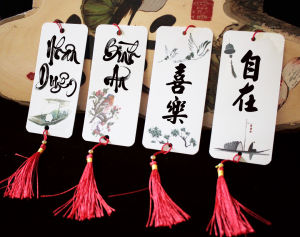 Nhân
Duyên
Bình
An
喜
樂
自
在